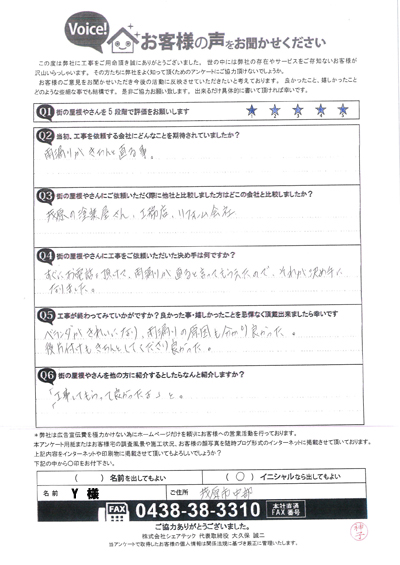 Voice!
お客様の声をお聞かせください
この度は弊社に工事をご用命頂き誠にありがとうございました。 世の中には弊社の存在やサービスをご存知ないお客様が
沢山いらっしゃいます。 その方たちに弊社をよく知って頂くためのアンケートにご協力頂けないでしょうか。
お客様のご意見をお聞かせいただき今後の活動に反映させていただきたいと考えております。 良かったこと、嬉しかったこと
どのような些細な事でも結構です。 是非ご協力お願い致します。 出来るだけ具体的に書いて頂ければ幸いです。
Q1 街の屋根やさんを5段階で評価をお願いします ★ ★ ★ ★ ★
Q2 当初、工事を依頼する会社にどんなことを期待されていましたか?
雨漏りがきちんと直る事。
Q3 街の屋根やさんにご依頼いただく際に他社と比較しました方はどこの会社と比較しましたか?
茂原の塗装屋さん、工務店、リフォーム会社
Q4 街の屋根やさんに工事をご依頼いただいた決め手は何ですか?
すぐにお電話頂けて、雨漏りが直ると言ってもらえたので、それが決め手に
なりました。
Q5 工事が終わってみていかがですか?良かった事・嬉しかったことを忌憚なく頂戴出来ましたら幸いです
ベランダがきれいになり、雨漏りの原因も分かり良かった。
後片付けもきちんとしてくださり良かった。
Q6 街の屋根やさんを他の方に紹介するとしたらなんと紹介しますか?
「工事してもらって良かったよ」と。
*弊社は広告宣伝費を極力かけない為にホームページだけを頼りにお客様への営業活動を行っております。
本アンケート用紙またはお客様宅の調査風景や施工状況、お客様の顔写真を随時ブログ形式のインターネットに掲載させて頂いております。
上記内容をインターネットや印刷物に掲載させて頂いてもよろしいでしょうか?
下記の中から〇印をお付下さい。
( ) 名前を出してもよい ( 〇 ) イニシャルなら出してもよい
名前 Y 様 ご住所 茂原市中部
FAX 0438-38-3310 本社直通 FAX番号
ご協力ありがとうございました。
株式会社シェアテック 代表取締役 大久保 誠二
当アンケートで取得したお客様の個人情報は関係法理に基づき厳正に管理いたします。